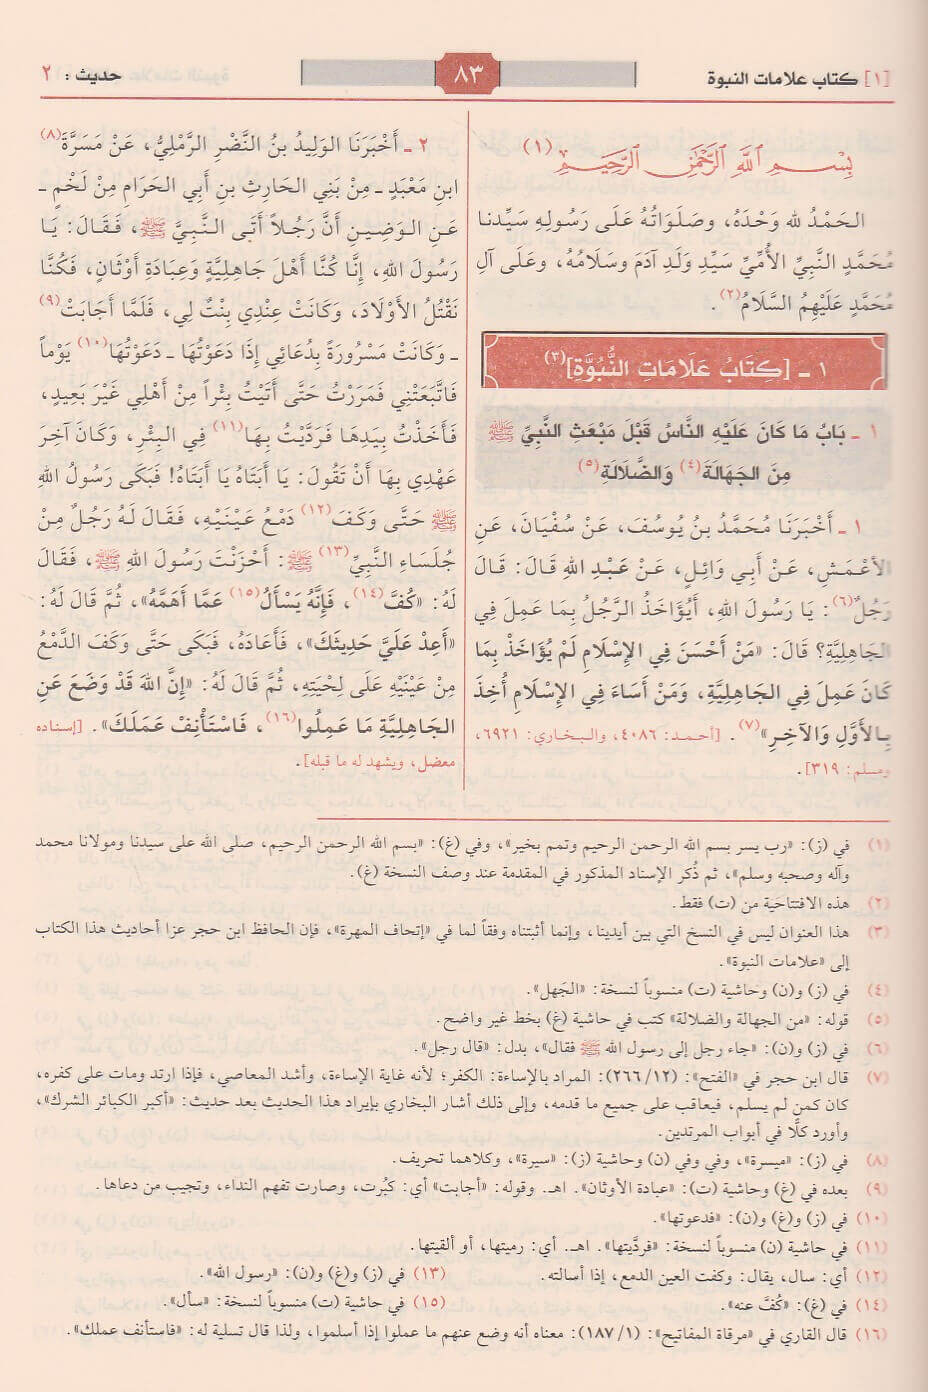 [١] كتاب علامات النبوة
٨٣
حديث : ٢
بِسْمِ اللَّهِ الرَّحْمَنِ الرَّحِيمِ (١)
الحَمْدُ لله وَحْدَهُ، وصَلَوَاتُهُ عَلَى رَسُولِهِ سَيِّدنا
مُحَمَّدٍ النَّبِيِّ الأُمِّيِّ سَيِّدِ وَلَدِ آدَمَ وَسَلَامُهُ، وَعَلَى آلِ
مُحَمَّدٍ عَلَيْهِمُ السَّلَامُ(٢) .
١ ـ [كِتَابُ عَلَامَاتِ النُّبُوَّةِ](٣)
١ ـ بَابُ مَا كَانَ عَلَيْهِ النَّاسُ قَبْلَ مَبْعَثِ النَّبِيِّ ﷺ
مِنَ الجَهَالَةِ(٤) وَالضَّلَالَةِ(٥)
١ ـ أَخْبَرَنَا مُحَمَّدُ بنُ يُوسُفَ، عَنْ سُفْيَانَ، عَنِ
الأَعْمَشِ، عَنْ أَبِي وَائِلٍ، عَنْ عَبْدِ اللهِ قَالَ: قَالَ
رَجُلٌ(٦): يَا رَسُولَ اللهِ، أَيُؤَاخَذُ الرَّجُلُ بِمَا عَمِلَ فِي
الجَاهِلِيَّةِ؟ قَالَ: «مَنْ أَحْسَنَ فِي الإِسْلَامِ لَمْ يُؤَاخَذْ بِمَا
كَانَ عَمِلَ فِي الجَاهِلِيَّةِ، وَمَنْ أَسَاءَ فِي الإِسْلَامِ أُخِذَ
بِالأَوَّلِ وَالآخِرِ»(٧). [أحمد: ٤٠٨٦، والبخاري: ٦٩٢١،
ومسلم: ٣١٩].
٢ ـ أَخْبَرَنَا الوَلِيدُ بنُ النَّضْرِ الرَّمْلِيُّ، عَنْ مَسَرَّةَ(٨)
ابنِ مَعْبَدٍ ـ مِنْ بَنِي الحَارِثِ بنِ أَبِي الحَرَامِ مِنْ لَخْمٍ ـ
عَنِ الوَضِينِ أَنَّ رَجُلاً أَتَى النَّبِيَّ ﷺ، فَقَالَ: يَا
رَسُولَ اللهِ، إِنَّا كُنَّا أَهْلَ جَاهِلِيَّةٍ وَعِبَادَةِ أَوْثَانٍ، فَكُنَّا
نَقْتُلُ الأَوْلَادَ، وَكَانَتْ عِنْدِي بِنْتٌ لِي، فَلَمَّا أَجَابَتْ(٩)
ـ وَكَانَتْ مَسْرُورَةً بِدُعَائِي إِذَا دَعَوْتُهَا ـ دَعَوْتُهَا(١٠) يَوْماً
فَاتَّبَعَتْنِي فَمَرَرْتُ حَتَّى أَتَيْتُ بِئْراً مِنْ أَهْلِي غَيْرَ بَعِيدٍ،
فَأَخَذْتُ بِيَدِهَا فَرَدَّيْتُ بِهَا(١١) فِي البِئْرِ، وَكَانَ آخِرَ
عَهْدِي بِهَا أَنْ تَقُولَ: يَا أَبَتَاهُ يَا أَبَتَاهُ! فَبَكَى رَسُولُ اللهِ
ﷺ حَتَّى وَكَفَ(١٢) دَمْعُ عَيْنَيْهِ، فَقَالَ لَهُ رَجُلٌ مِنْ
جُلَسَاءِ النَّبِيِّ(١٣) ﷺ: أَحْزَنْتَ رَسُولَ اللهِ ﷺ، فَقَالَ
لَهُ: «كُفَّ(١٤)، فَإِنَّهُ يَسْأَلُ(١٥) عَمَّا أَهَمَّهُ»، ثُمَّ قَالَ لَهُ:
«أَعِدْ عَلَيَّ حَدِيثَكَ»، فَأَعَادَهُ، فَبَكَى حَتَّى وَكَفَ الدَّمْعُ
مِنْ عَيْنَيْهِ عَلَى لِحْيَتِهِ، ثُمَّ قَالَ لَهُ: «إِنَّ اللهَ قَدْ وَضَعَ عَنِ
الجَاهِلِيَّةِ مَا عَمِلُوا(١٦)، فَاسْتَأْنِفْ عَمَلَكَ». [إسناده
معضل، ويشهد له ما قبله].
(١) في (ز): «رب يسر بسم الله الرحمن الرحيم وتمم بخير»، وفي (غ): «بسم الله الرحمن الرحيم، صلى الله على سيدنا ومولانا محمد
وآله وصحبه وسلم»، ثم ذُكر الإسناد المذكور في المقدمة عند وصف النسخة (غ).
(٢) هذه الافتتاحية من (ت) فقط.
(٣) هذا العنوان ليس في النسخ التي بين أيدينا، وإنما أثبتناه وفقاً لما في «إتحاف المهرة»، فإن الحافظ ابن حجر عزا أحاديث هذا الكتاب
إلى «علامات النبوة».
(٤) في (ز) و(ن) وحاشية (ت) منسوباً لنسخة: «الجَهل».
(٥) قوله: «من الجهالة والضلالة» كتب في حاشية (غ) بخط غير واضح.
(٦) في (ز) و(ن): «جاء رجل إلى رسول الله ﷺ فقال»، بدل: «قال رجل».
(٧) قال ابن حجر في «الفتح»: (١٢/ ٢٦٦): المراد بالإساءة: الكفر؛ لأنه غاية الإساءة، وأشد المعاصي، فإذا ارتد ومات على كفره،
كان كمن لم يسلم، فيعاقب على جميع ما قدمه، وإلى ذلك أشار البخاري بإيراد هذا الحديث بعد حديث: «أكبر الكبائر الشرك»،
وأورد كلًّا في أبواب المرتدين.
(٨) في (ز): «ميسرة»، وفي وفي (ن) وحاشية (ز): «سيرة»، وكلاهما تحريف.
(٩) بعده في (غ) وحاشية (ت): «عبادة الأوثان». اهـ. وقوله: «أجابت» أي: كبُرت، وصارت تفهم النداء، وتجيب من دعاها.
(١٠) في (ز) و(غ) و(ن): «فدعوتها».
(١١) في حاشية (ن) منسوباً لنسخة: «فردَّيتها». اهـ. أي: رميتها، أو ألقيتها.
(١٢) أي: سال، يقال: وكفت العين الدمع، إذا أسالته.
(١٣) في (ز) و(غ) و(ن): «رسول الله».
(١٤) في (غ): «كُفَّ عنه».
(١٥) في حاشية (ت) منسوباً لنسخة: «سأل».
(١٦) قال القاري في «مرقاة المفاتيح»: (١/ ١٨٧): معناه أنه وضع عنهم ما عملوا إذا أسلموا، ولذا قال تسلية له : «فاستأنف عملك».